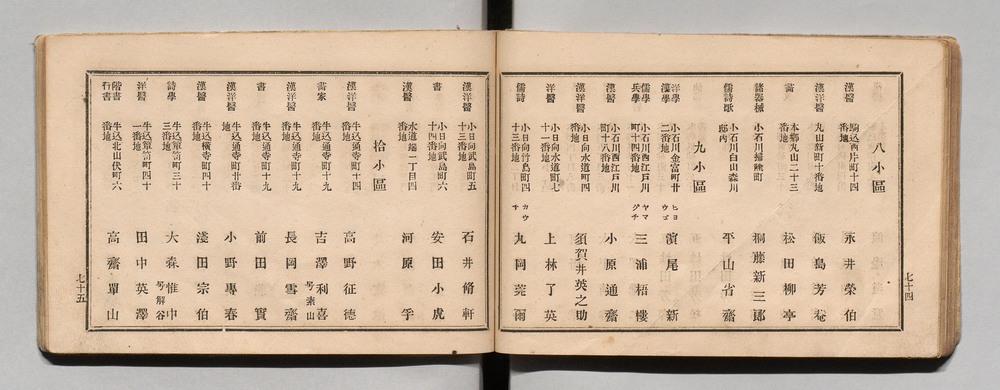 八小區
漢醫 駒込西片町十四番地 永井榮伯
漢洋醫 丸山新町十番地 飯島芳菴
本鄉丸山二十三番地 松田柳亭
諸器械 小石川掃除町 桐藤新三郎
儒詩歌 小石川白山森川邸內 平山省齋
九小區
洋學漢學 小石川金富町廿二番地 ヒヨウゴ 濵尾新
儒學兵學 小石川西江戸川町十四番地 ヤマグチ 三浦梧樓
漢醫 小石川西江戸川町十八番地 小原通齋
漢洋醫 小日向水道町四番地 須賀井英之助
洋醫 小日向水道町七十一番地 上林了英
儒詩 小日向竹島町四十三番地 カウサ 丸岡莞爾
七十四
漢洋醫 小日向武島町五十三番地 石井脩軒
書 小日向武島町六十四番地 安田小虎
漢醫 水道端二丁目四番地 河原
拾小區
漢洋醫 牛込通寺町十四番地 高野征德
書家 牛込通寺町十九番地 吉澤利喜 号素山
漢洋醫 牛込通寺町十九番地 長岡雪齋
書 牛込通寺町十九番地 前田實
漢洋醫 牛込通寺町廿番地 小野專春
漢醫 牛込橫寺町四十番地 淺田宗伯
詩學 牛込簞笥町三十三番地 大森惟中 号解谷
洋醫 牛込簞笥町四十一番地 田中英澤
階書行書 牛込北山伏町六番地 高齋單山
七十五